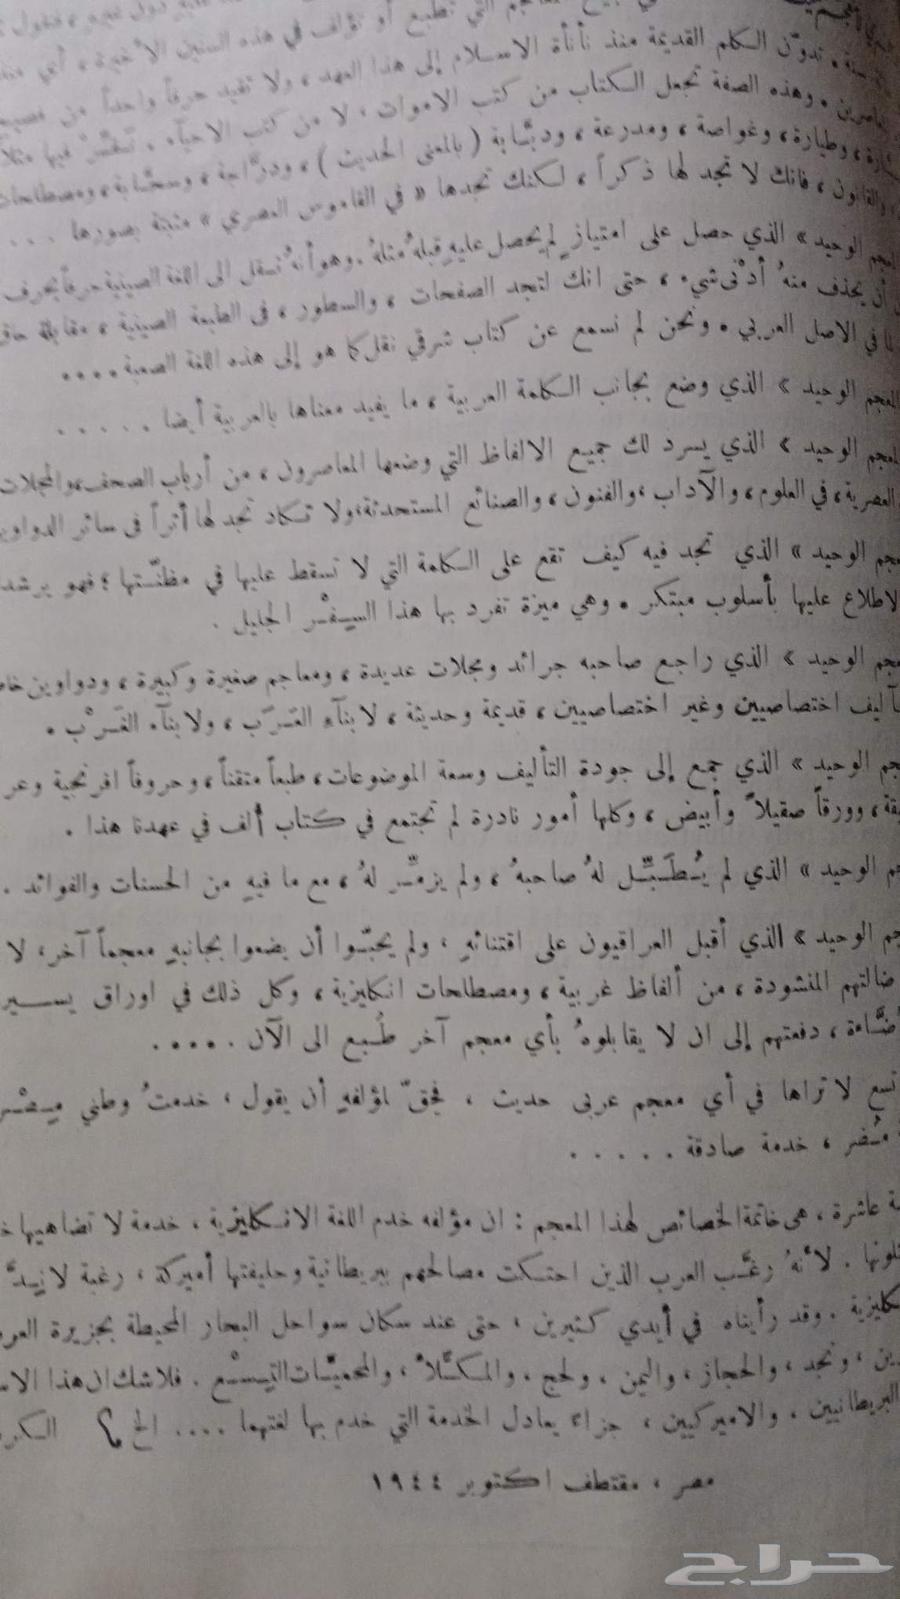 في جميع المعاجم التي تطبع أو تؤلف في هذه السنين الأخيرة ، أي منذ
تدوّن الكلم القديمة منذ نأنأة الاسلام إلى هذا العهد ، ولا تفيد حرفاً واحداً من
المعاصرين . وهذه الصفة تجعل الكتاب من كتب الاموات ، لا من كتب الاحياء . فيها مثلاً
وطيارة ، وغواصة ، ومدرعة ، ودبّابة ( بالمعنى الحديث ) ، ودرّاجة ، وسحّابة ، ومصطلحات
والقانون ، فانك لا تجد لها ذكراً ، لكنك تجدها « في القاموس العصري » مثبتة بصورها . . .
الوحيد » الذي حصل على امتياز لم يحصل عليهِ قبلهُ مثلهُ . وهو أنهُ نقل الى اللغة الصينية حرفاً بحرف
أن يحذف منهُ أدْنى شيء ، حتى انك لتجد الصفحات ، والسطور ، في الطبعة الصينية ، مقابلة
في الاصل العربي . ونحن لم نسمع عن كتاب شرقي نقل كما هو إلى هذه اللغة الصعبة . . . .
المعجم الوحيد » الذي وضع بجانب الكلمة العربية ، ما يفيد معناها بالعربية أيضا . . . . .
المعجم الوحيد » الذي يسرد لك جميع الالفاظ التي وضعها المعاصرون ، من أرباب الصحف ، والمجلات
العصرية ، في العلوم ، والآداب ، والفنون ، والصنائع المستحدثة ، ولا تكاد تجد لها أثراً في سائر الدواوين
الوحيد » الذي تجد فيه كيف تقع على الكلمة التي لا تسقط عليها في مظنّتها ؛ فهو يرشد
الاطلاع عليها بأسلوب مبتكر . وهي ميزة تفرد بها هذا السِفْر الجليل .
الوحيد » الذي راجع صاحبه جرائد ومجلات عديدة ، ومعاجم صغيرة وكبيرة ، ودواوين
اختصاصيين وغير اختصاصيين ، قديمة وحديثة ، لابناء العَرَب ، ولابناء الغَرْب .
الوحيد » الذي جمع إلى جودة التأليف وسعة الموضوعات ، طبعاً متقناً ، وحروفاً افرنجية
وورقاً صقيلاً وأبيض ، وكلها أمور نادرة لم تجتمع في كتاب ألف في عهدنا هذا .
الوحيد » الذي لم يُطَبِّل لهُ صاحبهُ ، ولم يزمّر لهُ ، مع ما فيهِ من الحسنات والفوائد .
الوحيد » الذي أقبل العراقيون على اقتنائهِ ، ولم يحبّوا أن يضعوا بجانبهِ معجماً آخر ، لا
ضالتهم المنشودة ، من ألفاظ غربية ، ومصطلحات انكليزية ، وكل ذلك في اوراق
دفعتهم إلى ان لا يقابلوهُ بأي معجم آخر طُبع الى الآن . . . . .
تسع لا تراها في أي معجم عربي حديث ، فحقّ لمؤلفهِ أن يقول ، خدمتُ وطني
مُضَر ، خدمة صادقة . . . . .
عاشرة ، هي خاتمة الخصائص لهذا المعجم : ان مؤلفه خدم اللغة الانكليزية ، خدمة لا تضاهيها
لأنهُ رغّب العرب الذين احتكت مصالحهم ببريطانية وحليفتها أميركة ، رغبة
وقد رأيناه في أيدي كثيرين ، حتى عند سكان سواحل البحار المحيطة بجزيرة
ونجد ، والحجاز ، واليمن ، ولحج ، والمكلّا ، والمحميّات التِسْع . فلا شك ان هذا
البريطانيين ، والاميركيين ، جزاء يعادل الخدمة التي خدم بها لغتهما . . . . الخ
مصر ، مقتطف اكتوبر ١٩٤٤
حراج